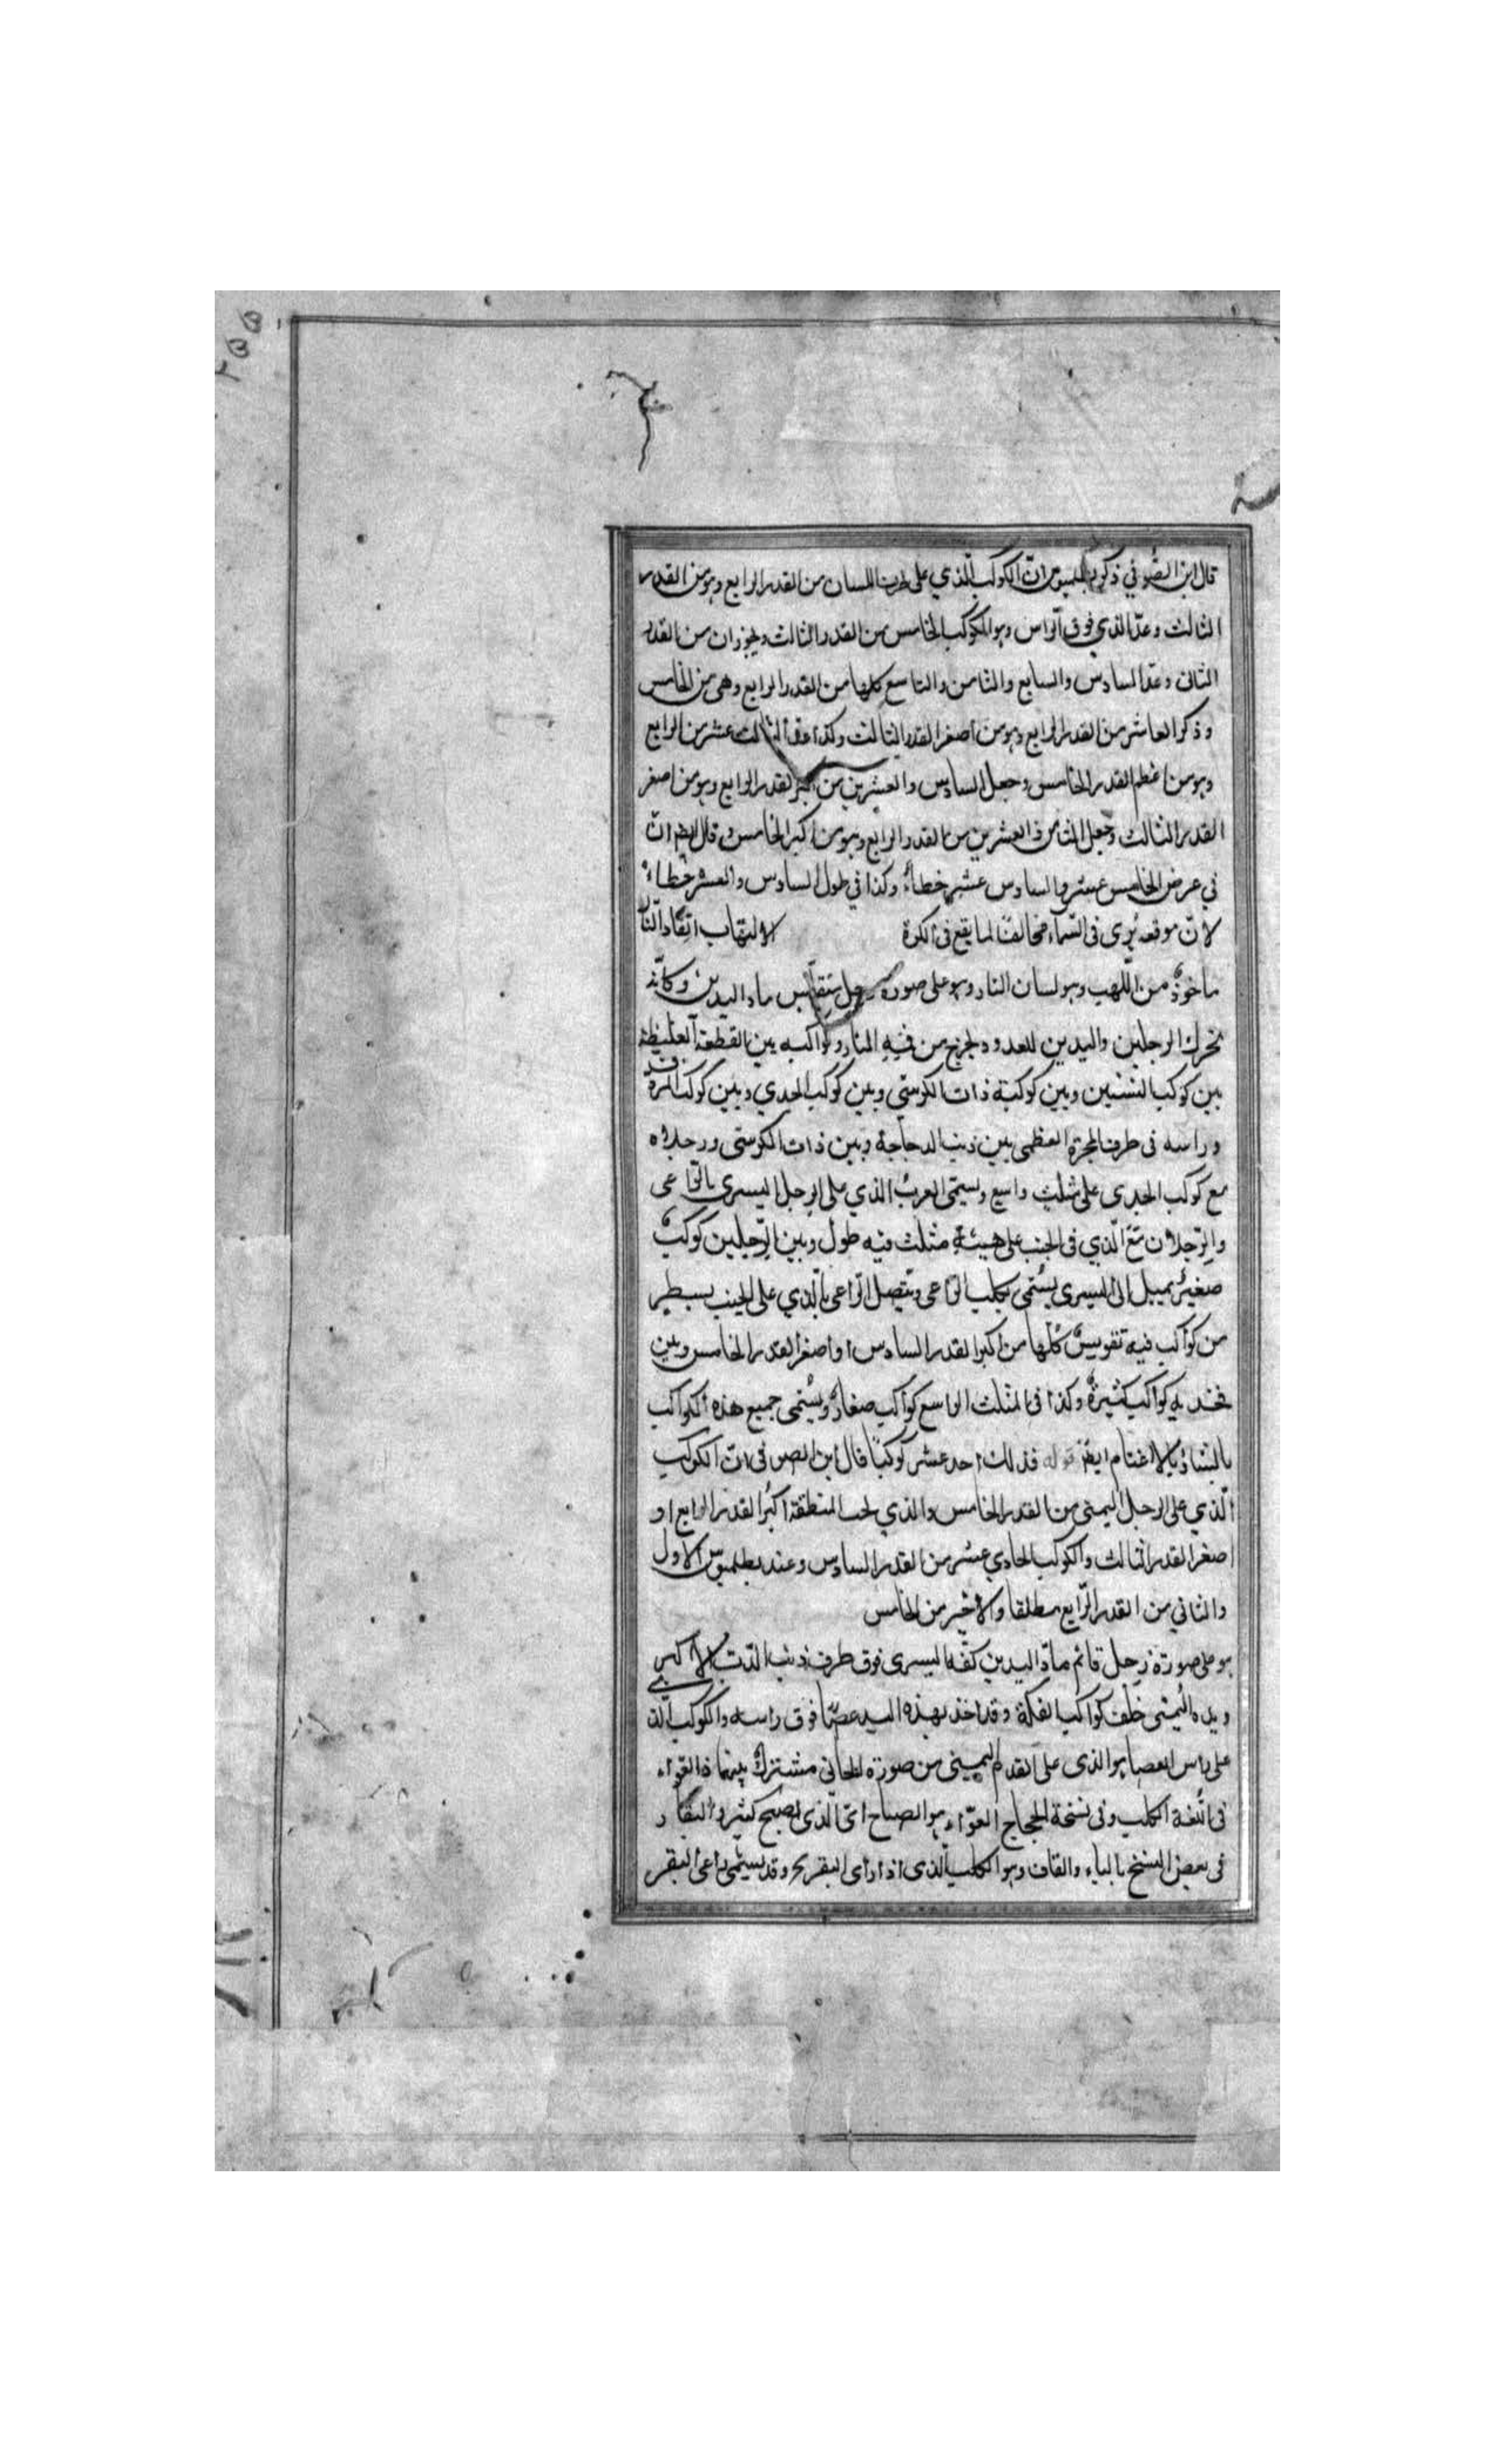 قال ابن الصوفي ذكر بطلميوس ان الكوكب الذي على طرف اللسان من القدر الرابع وهو من القدر
الثالث وعد الذي فوق الراس وهو الكوكب الخامس من القدر الثالث ويجوز ان من القدر
الثانى وعد السادس والسابع والثامن والتاسع كلها من القدر الرابع وهى من الخامس
وذكر العاشر من القدر الرابع وهو من أصغر القدر الثالث وكذا عد الثالث عشر من الرابع
وهو من اعظم القدر الخامس وجعل السادس والعشرين من اكبر القدر الرابع وهو من اصغر
القدر الثالث وجعل الثامن والعشرين من القدر الرابع وهو من اكبر الخامس وقال ايضا ان
في عرض الخامس عشر والسادس عشر خطاءً وكذا في طول السادس والعشر خطاءً
لان موقعه يرى فى السماء مخالفا لما يقع فى الكرة الالتهاب اتقاد النار
ماخوذ من اللهب وهو لسان النار وهو على صورة رجل ماد اليدين وكانه
تحرك الرجلين واليدين للعدو ويخرج من فيه النار وكواكبه بين القطعة العظيمة
بين كوكب التنين وبين كوكبة ذات الكرسي وبين كوكب الجدي وبين كوكب
وراسه فى طرف المجرة العظمى بين ذنب الدجاجة وبين ذات الكرسى ورجلاه
مع كوكب الجدى على مثلث واسع ويسمى العرب الذي على الرجل اليسرى بالراعى
والرجلان مع الذي فى الجنب على هيئة مثلث فيه طول وبين الرجلين كوكب
صغير يميل الى اليسرى يسمى بكلب الراعى ويتصل الراعى بالذي على الجنب بسطر
من كواكب فيه تقويس كلها من اكبر القدر السادس او اصغر القدر الخامس وبين
فخذيه كواكب كثيرة وكذا فى المثلث الواسع كواكب صغار ويسمى جميع هذه الكواكب
بالشاء بالاغنام ايضا قوله فذلك احد عشر كوكبا قال ابن الصوفى ان الكوكب
الذي على الرجل اليمنى من القدر الخامس والذي تحت المنطقة اكبر القدر الرابع او
اصغر القدر الثالث والكوكب الحادي عشر من القدر السادس وعند بطلميوس الاول
والثاني من القدر الرابع مطلقا والاخير من الخامس
هو على صورة رجل قائم ماد اليدين كفه اليسرى فوق طرف ذنب الدب الاكبر
ويده اليمنى خلف كواكب الفكة وقد اخذ بهذه اليد عصا فوق راسه والكوكب الذ
على راس العصا هو الذى على القدم اليمنى من صورة الجاثى مشترك بينهما والعواء
فى اللغة الكلب وفى نسخة الحجاج العواء هو الصياح اى الذى يصيح كثيرا والبقار
فى بعض النسخ بالباء والقاف وهو الكلب الذى اذا راى البقر وقد يسمى راعى البقر